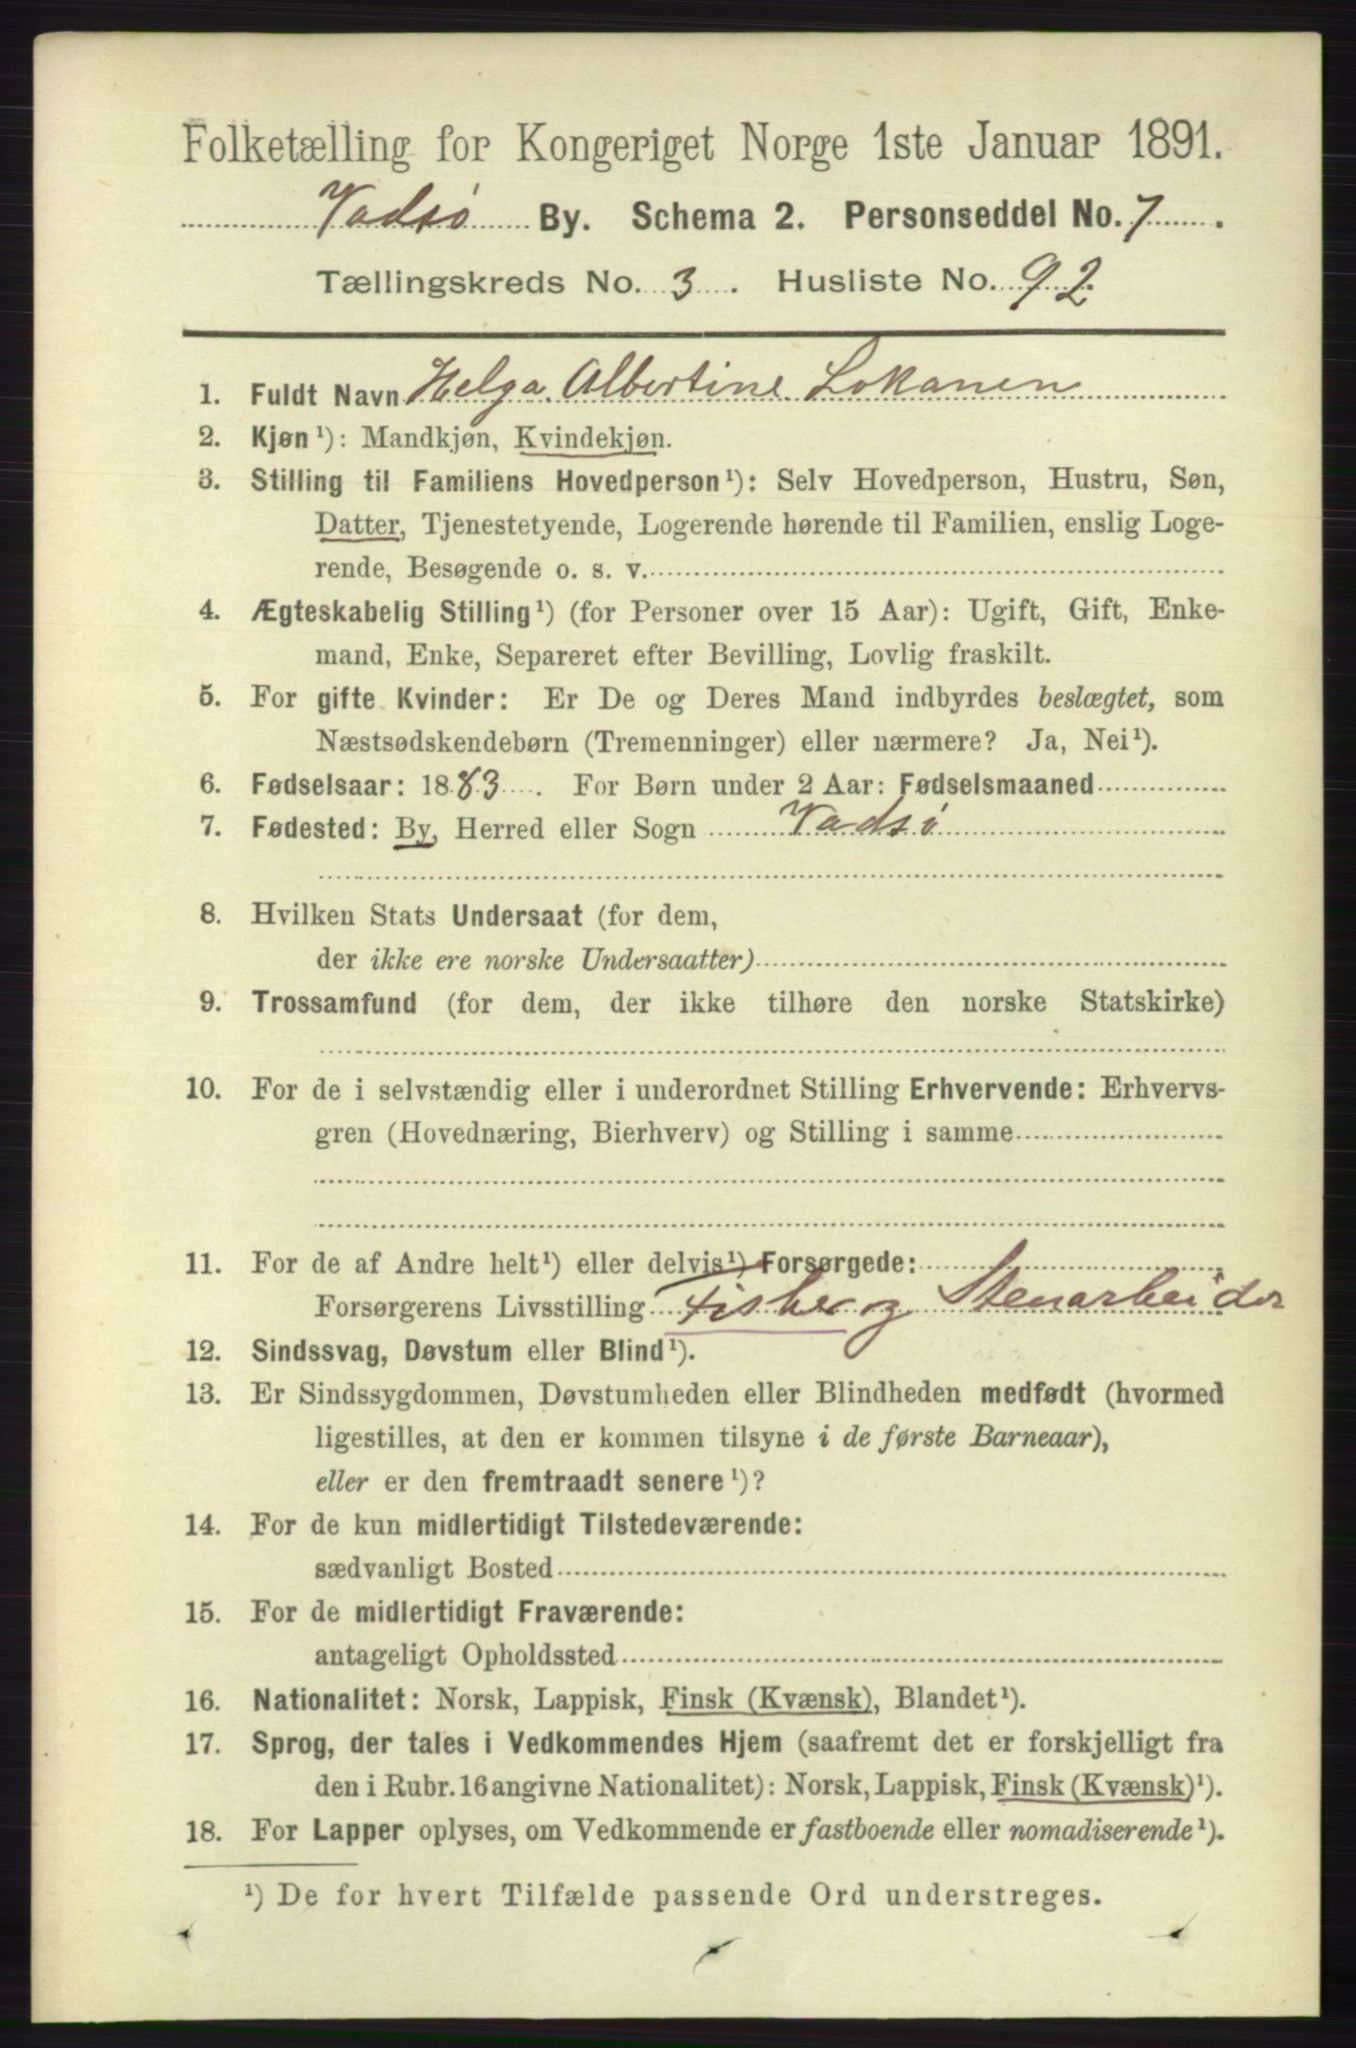 Folketælling for Kongeriget Norge 1ste Januar 1891.
Vadsø By. Schema 2. Personseddel No. 7.
Tællingskreds No. 3. Husliste No. 92.
1. Fuldt Navn Helga Albertine Lokanen
2. Kjøn¹): Mandkjøn, Kvindekjøn.
3. Stilling til Familiens Hovedperson¹): Selv Hovedperson, Hustru, Søn,
Datter, Tjenestetyende, Logerende hørende til Familien, enslig Loge-
rende, Besøgende o. s. v.
4. Ægteskabelig Stilling¹) (for Personer over 15 Aar): Ugift, Gift, Enke-
mand, Enke, Separeret efter Bevilling, Lovlig fraskilt.
5. For gifte Kvinder: Er De og Deres Mand indbyrdes beslægtet, som
Næstsødskendebørn (Tremenninger) eller nærmere? Ja, Nei¹).
6. Fødselsaar: 1883. For Børn under 2 Aar: Fødselsmaaned
7. Fødested: By, Herred eller Sogn Vadsø
8. Hvilken Stats Undersaat (for dem,
der ikke ere norske Undersaatter)
9. Trossamfund (for dem, der ikke tilhøre den norske Statskirke)
10. For de i selvstændig eller i underordnet Stilling Erhvervende: Erhvervs-
gren (Hovednæring, Bierhverv) og Stilling i samme
11. For de af Andre helt¹) eller delvis¹) Forsørgede:
Forsørgerens Livsstilling Fisker og Stenarbeider
12. Sindssvag, Døvstum eller Blind¹).
13. Er Sindssygdommen, Døvstumheden eller Blindheden medfødt (hvormed
ligestilles, at den er kommen tilsyne i de første Barneaar),
eller er den fremtraadt senere¹)?
14. For de kun midlertidigt Tilstedeværende:
sædvanligt Bosted
15. For de midlertidigt Fraværende:
antageligt Opholdssted
16. Nationalitet: Norsk, Lappisk, Finsk (Kvænsk), Blandet¹).
17. Sprog, der tales i Vedkommendes Hjem (saafremt det er forskjelligt fra
den i Rubr. 16 angivne Nationalitet): Norsk, Lappisk, Finsk (Kvænsk)¹).
18. For Lapper oplyses, om Vedkommende er fastboende eller nomadiserende¹).
¹) De for hvert Tilfælde passende Ord understreges.